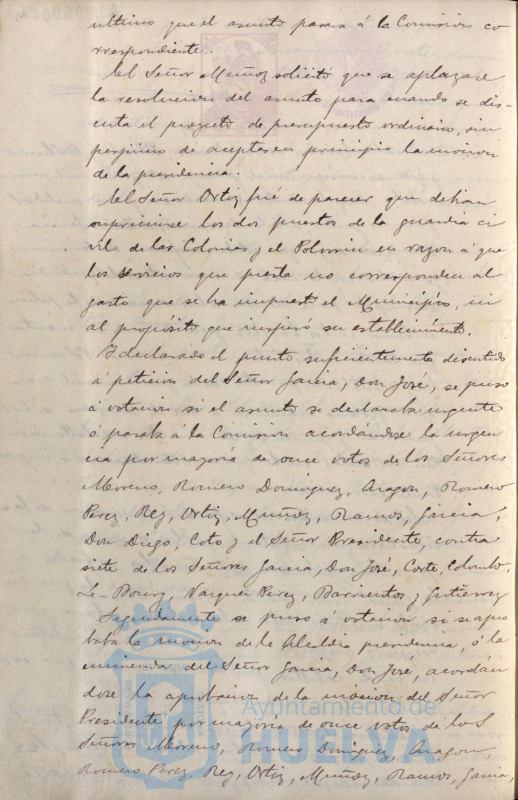 ultimo que el asunto pasara á la Comision co
rrespondiente.
El Señor Muñoz solicitó que se aplazase
la resolucion del asunto para cuando se dis-
cuta el proyecto de presupuesto ordinario, sin
perjuicio de aceptar en principio la mocion
de la presidencia.
El Señor Ortiz fué de parecer que debian
suprimirse los dos puestos de la guardia ci
vil de las Colonias y el Polvorin en razon á que
los servicios que presta no corresponden al
gasto que se ha impuesto el Municipio, ni
al propósito que inspiró su establecimiento.
Y declarado el punto suficientemente discutido
á peticion del Señor Garcia, Don José, se puso
á votacion si el asunto se declaraba urgente
ó pasaba á la Comision acordándose la urgen
cia por mayoría de once votos de los Señores
Moreno, Romero Dominguez, Aragon, Romero
Perez, Rey, Ortiz, Muñoz, Ramos, Garcia,
Don Diego, Coto y el Señor Presidente, contra
siete de los Señores Garcia, Don José, Corte, Colombo,
Le-Bourg, Vazquez Perez, Barrientos y Gutierrez
Seguidamente se puso á votacion si se apro
baba la mocion de la Alcaldia presidencia, ó la
enmienda del Señor Garcia, Don José, acordán
dose la aprobacion de la mocion del Señor
Presidente por mayoría de once votos de los S
Señores Moreno, Romero Dominguez, Aragon,
Romero Perez, Rey, Ortiz, Muñoz, Ramos, Garcia,
Ayuntamiento de
HUELVA